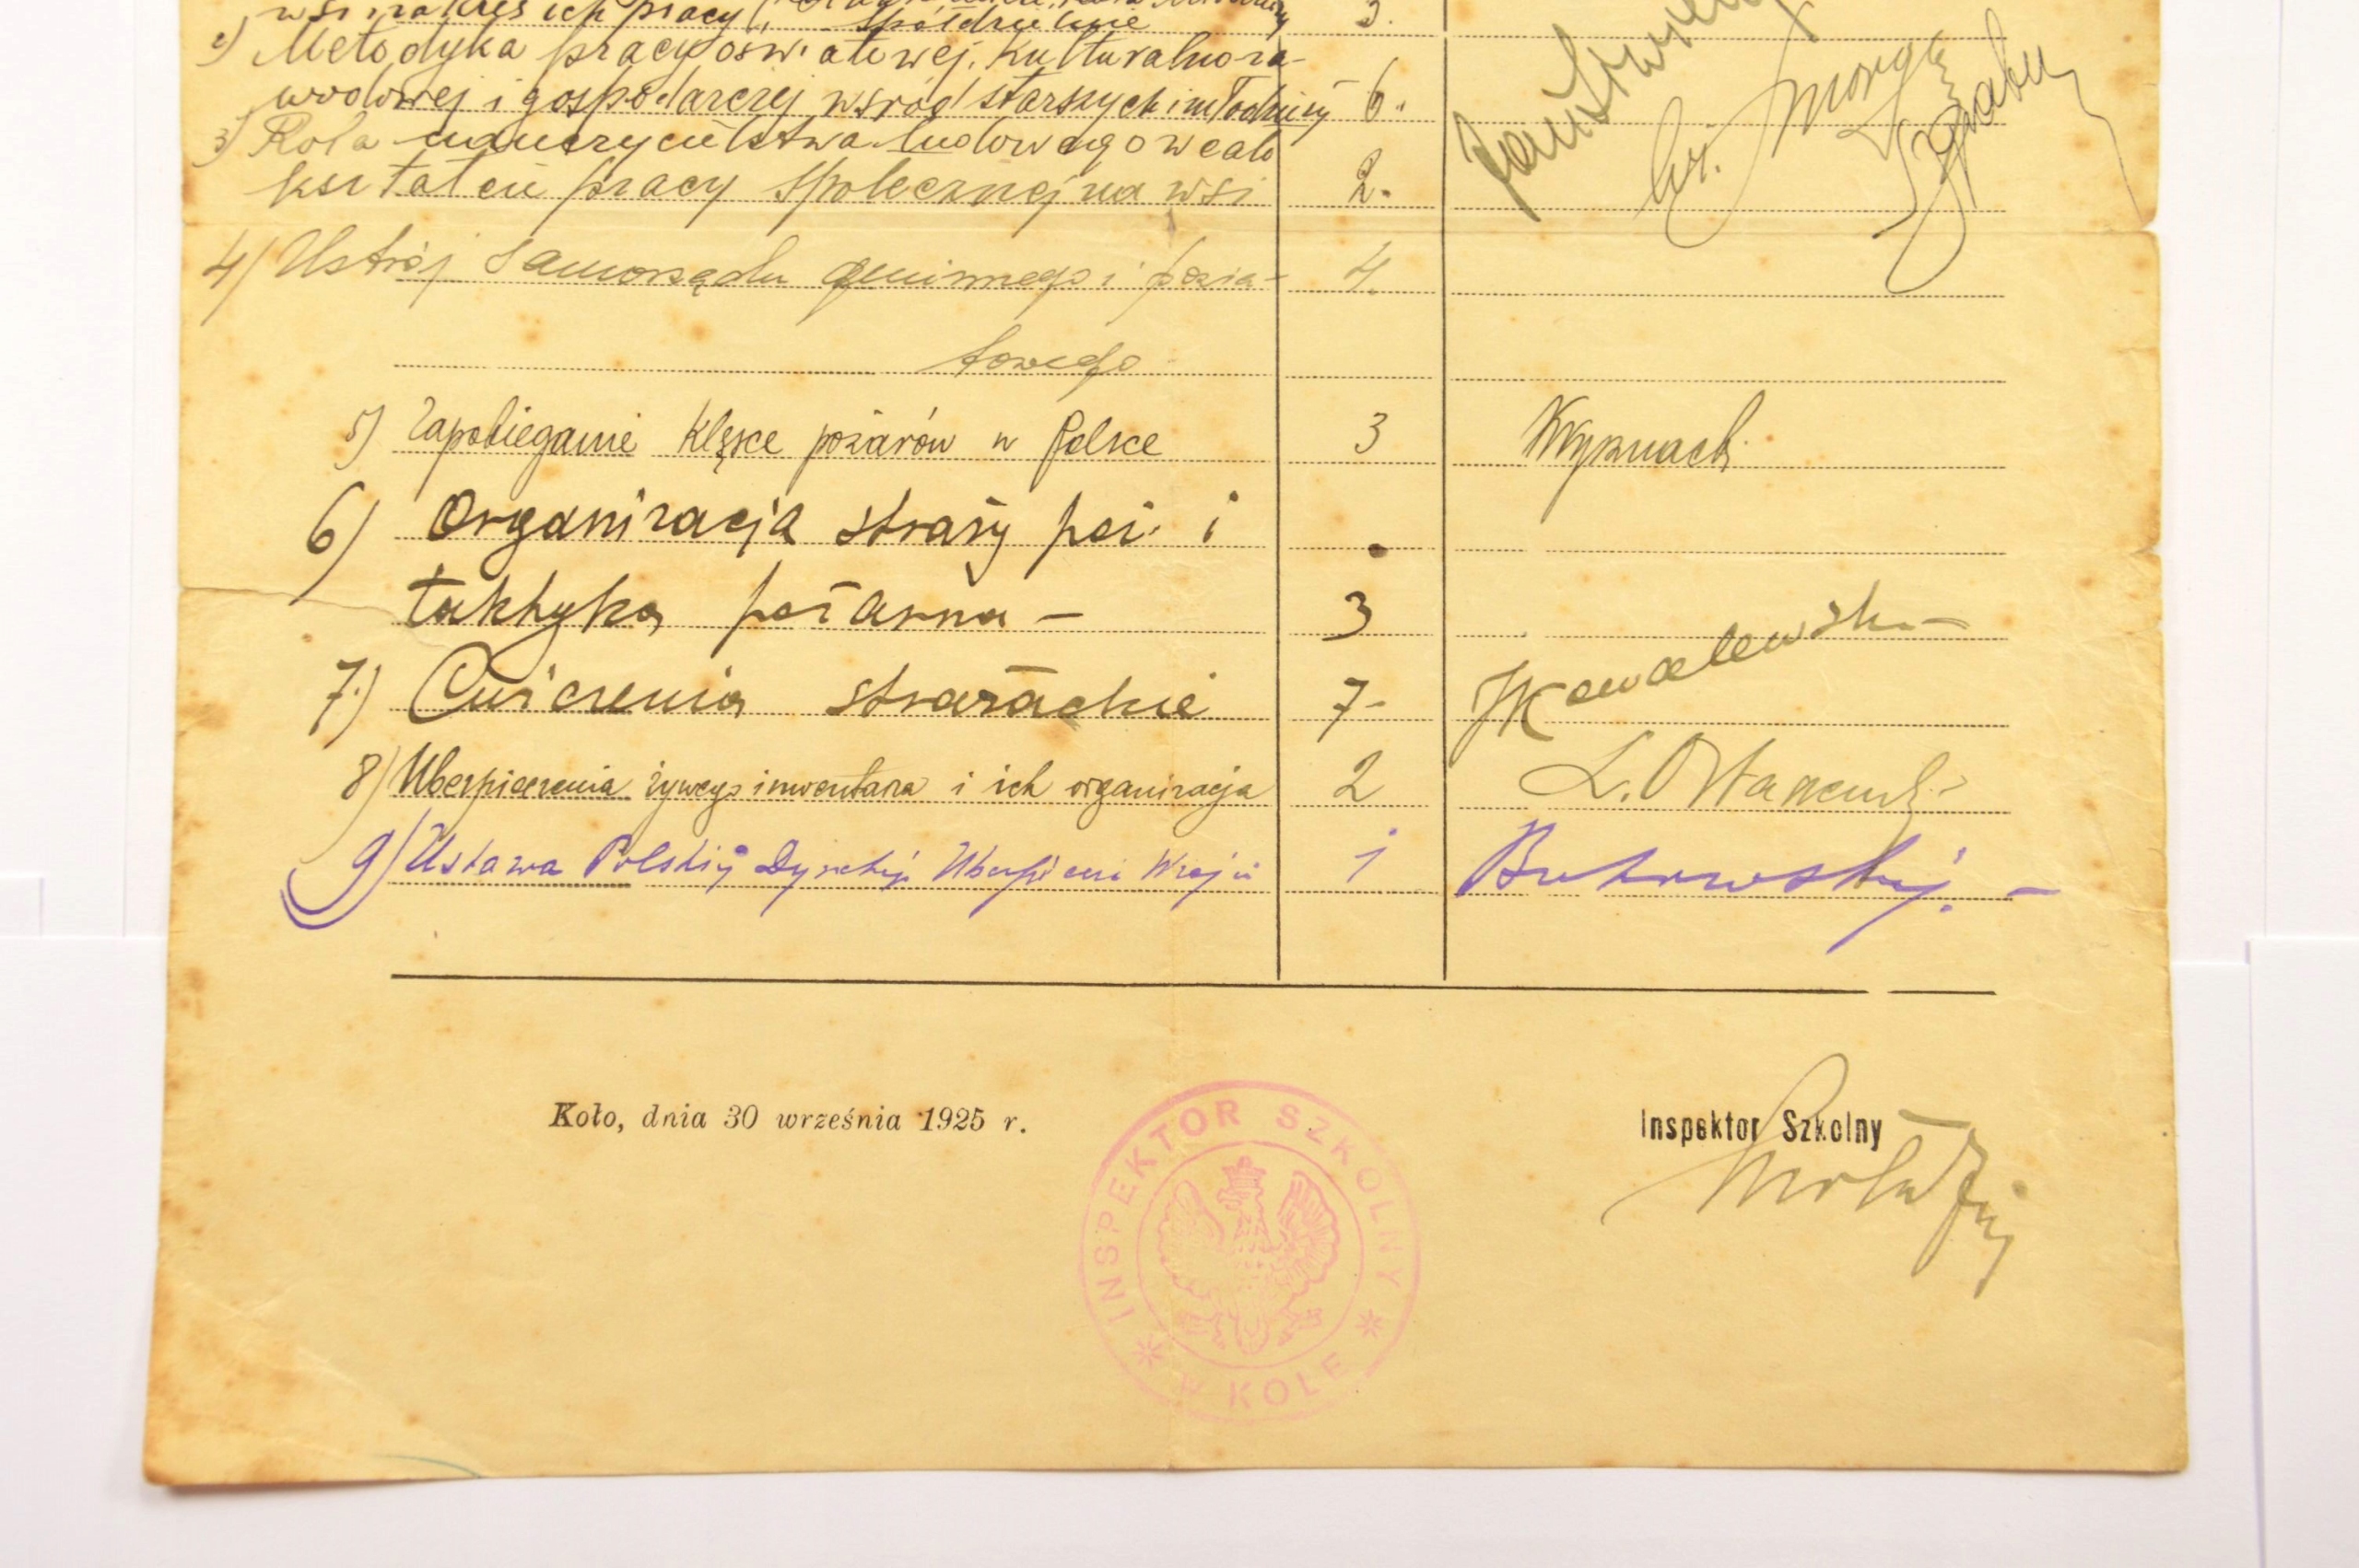 wsi zakres ich pracy
spółdzielnie 3.
2) Metodyka pracy oświatowej, kulturalno za-
wodowej i gospodarczej wśród starszych i młodzieży 6.
3) Rola nauczycielstwa ludowego w cało
kształcie pracy społecznej na wsi 2.
4) Ustrój samorządu gminnego i powia- 4.
towego
5) Zapobieganie klęsce pożarów w Polsce 3
6) Organizacja straży poż. i
taktyka pożarna - 3
7.) Ćwiczenia strażackie 7- Kowalewski
8) Ubezpieczenia żywego inwentarza i ich organizacja 2
9) Ustawa Polskiej Dyrekcji Ubezpieczeń Wzaj. 1 Butrowskij.
Koło, dnia 30 września 1925 r.
Inspektor Szkolny
INSPEKTOR SZKOLNY
W KOLE